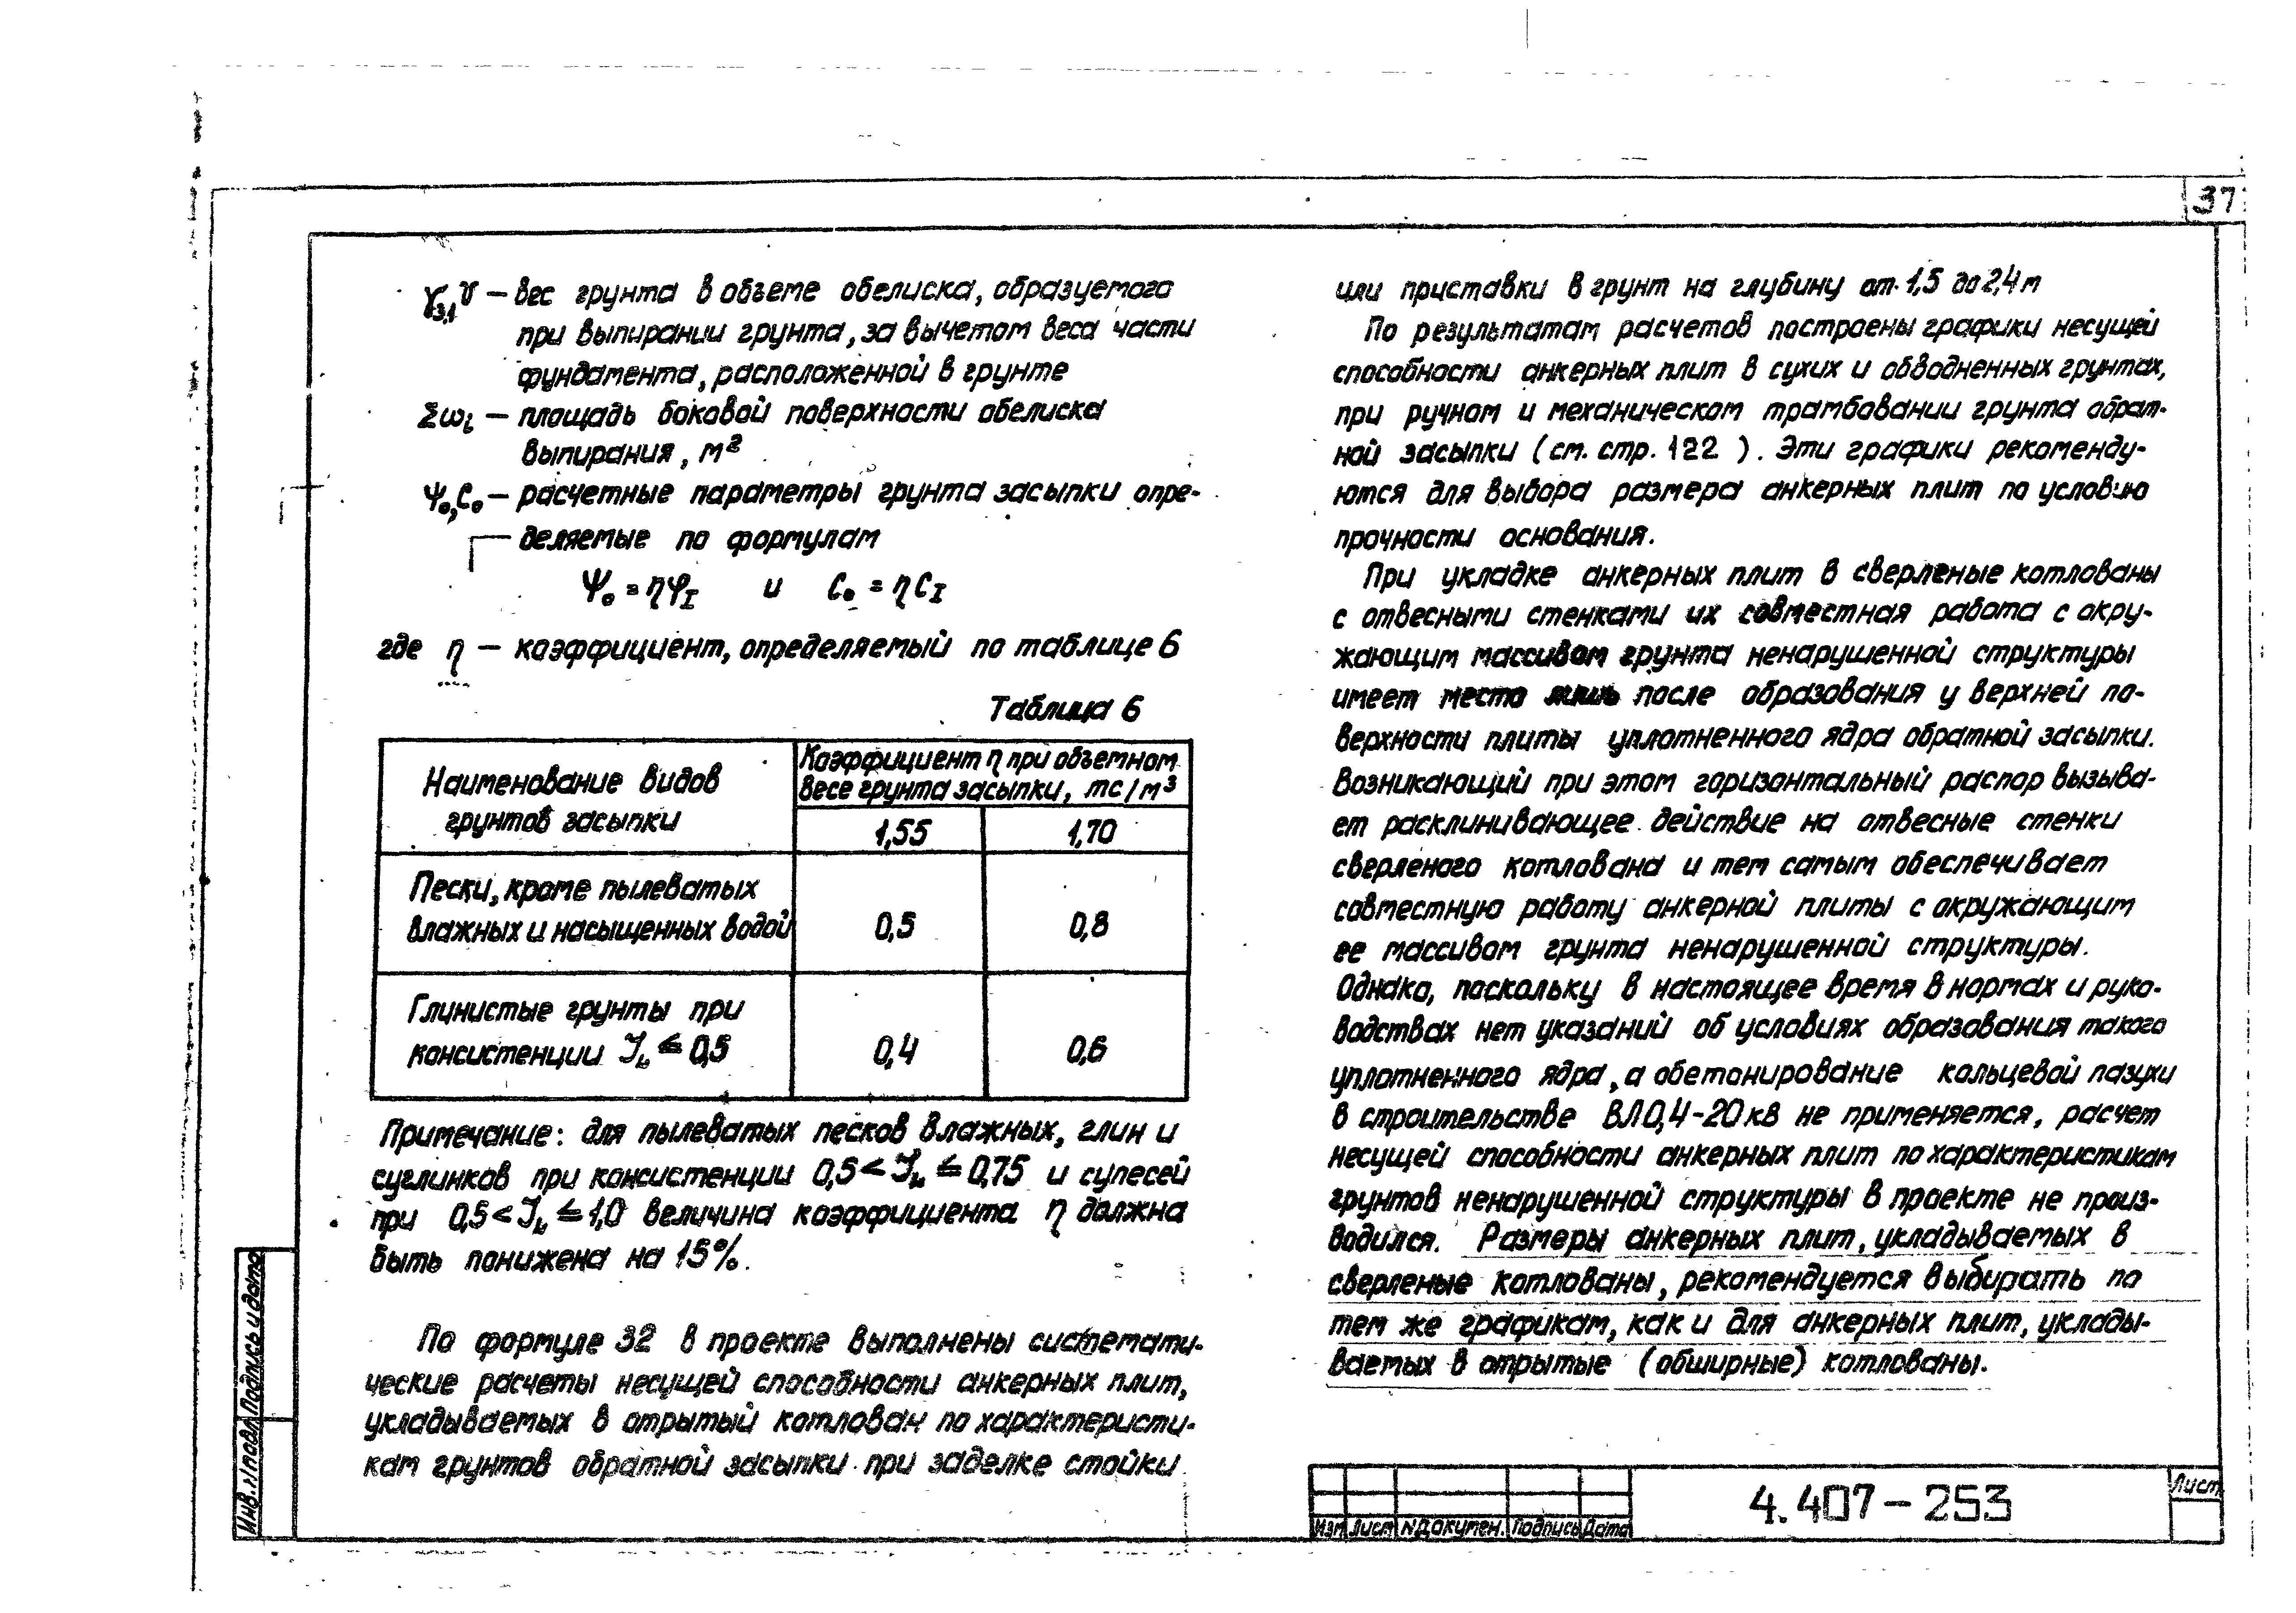 37
γ3,1 V — вес грунта в объеме обелиска, образуемого
при выпирании грунта, за вычетом веса части
фундамента, расположенной в грунте
Σωi — площадь боковой поверхности обелиска
выпирания, м²
Ψo, Co — расчетные параметры грунта засыпки опре-
деляемые по формулам
Ψo = ηφI и Co = ηCI
где η — коэффициент, определяемый по таблице 6
Таблица 6
Наименование видов
грунтов засыпки
Коэффициент η при объемном
весе грунта засыпки, тс/м³
1,55 1,70
Пески, кроме пылеватых
влажных и насыщенных водой 0,5 0,8
Глинистые грунты при
консистенции JL ≤ 0,5 0,4 0,6
Примечание: для пылеватых песков влажных, глин и
суглинков при консистенции 0,5 < JL ≤ 0,75 и супесей
при 0,5 < JL ≤ 1,0 величина коэффициента η должна
быть понижена на 15%.
По формуле 32 в проекте выполнены системати-
ческие расчеты несущей способности анкерных плит,
укладываемых в отрытый котлован по характеристи-
кам грунтов обратной засыпки при заделке стойки
или приставки в грунт на глубину от 1,5 до 2,4 м
По результатам расчетов построены графики несущей
способности анкерных плит в сухих и обводненных грунтах,
при ручном и механическом трамбовании грунта обрат-
ной засыпки (см. стр. 122 ). Эти графики рекоменду-
ются для выбора размера анкерных плит по условию
прочности основания.
При укладке анкерных плит в сверленые котлованы
с отвесными стенками их совместная работа с окру-
жающим массивом грунта ненарушенной структуры
имеет место лишь после образования у верхней по-
верхности плиты уплотненного ядра обратной засыпки.
Возникающий при этом горизонтальный распор вызыва-
ет расклинивающее действие на отвесные стенки
сверленого котлована и тем самым обеспечивает
совместную работу анкерной плиты с окружающим
ее массивом грунта ненарушенной структуры.
Однако, поскольку в настоящее время в нормах и руко-
водствах нет указаний об условиях образования такого
уплотненного ядра, а обетонирование кольцевой пазухи
в строительстве ВЛ 0,4-20 кв не применяется, расчет
несущей способности анкерных плит по характеристикам
грунтов ненарушенной структуры в проекте не произ-
водился. Размеры анкерных плит, укладываемых в
сверленые котлованы, рекомендуется выбирать по
тем же графикам, как и для анкерных плит, уклады-
ваемых в отрытые (обширные) котлованы.
Инв. № подл. Подпись и дата
Изм Лист N докумен. Подпись Дата
4.407-253
Лист